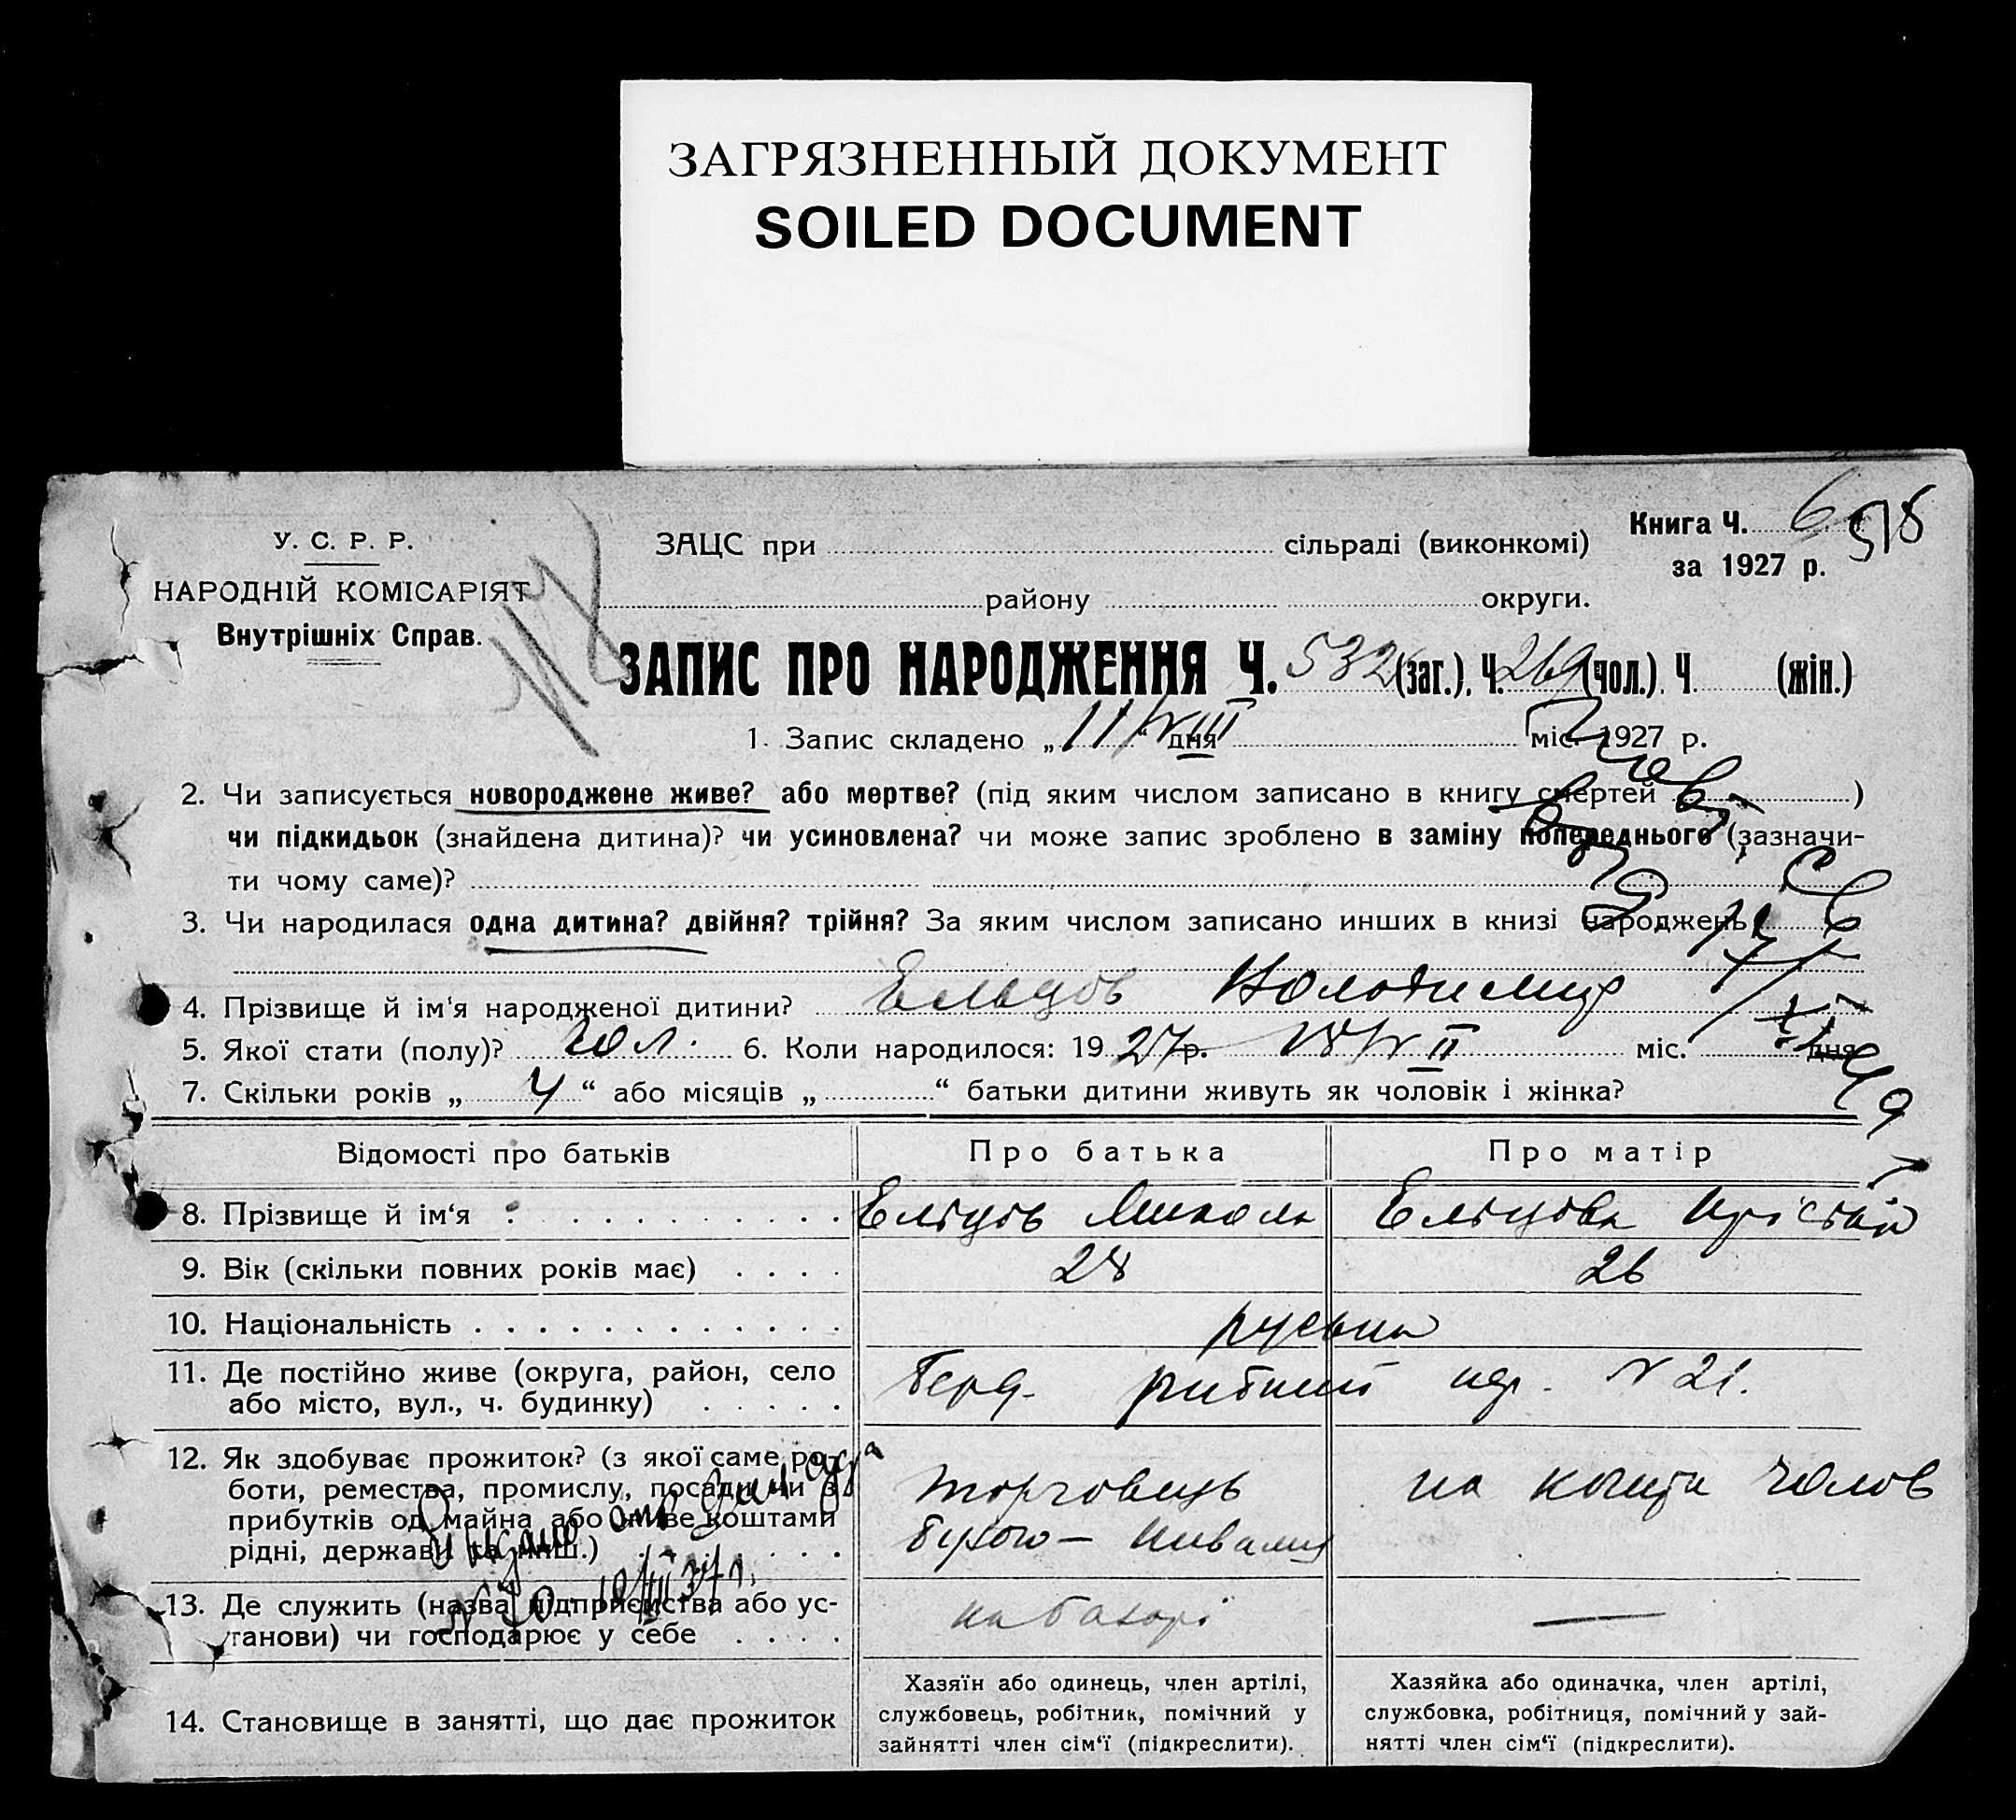 ЗАГРЯЗНЕННЫЙ ДОКУМЕНТ
SOILED DOCUMENT
Книга Ч. 6
за 1927 р.
У. С. Р. Р.
НАРОДНІЙ КОМІСАРІЯТ
Внутрішніх Справ.
ЗАЦС при сільраді (виконкомі)
району округи.
ЗАПИС ПРО НАРОДЖЕННЯ Ч. 532 (заг.). Ч. 269 (чол.). Ч. (жін.)
1. Запис складено „ 11/VIII “ дня міс. 1927 р.
2. Чи записується новороджене живе? або мертве? (під яким числом записано в книгу смертей )
чи підкидьок (знайдена дитина)? чи усиновлена? чи може запис зроблено в заміну попереднього (зазначи-
ти чому саме)?
3. Чи народилася одна дитина? двійня? трійня? За яким числом записано инших в книзі народжень
4. Прізвище й ім‘я народженої дитини? Ельцов Володимир
5. Якої стати (полу)? чол. 6. Коли народилося: 19 27 р. міс. дня
7. Скільки років „ 4 “ або місяців „ “ батьки дитини живуть як чоловік і жінка?
Відомості про батьків Про батька Про матір
8. Прізвище й ім‘я Ельцов Микола Ельцова
9. Вік (скільки повних років має) 28 26
10. Національність руські
11. Де постійно живе (округа, район, село
або місто, вул., ч. будинку) Берд. рибний пер. N 21.
12. Як здобуває прожиток? (з якої саме ро-
боти, ремества, промислу, посади чи з
прибутків од майна або живе коштами
рідні, держави та инш.) торговець на кошти чолов
13. Де служить (назва підприємства або ус-
танови) чи господарює у себе на базарі —
14. Становище в занятті, що дає прожиток
Хазяїн або одинець, член артілі,
службовець, робітник, помічний у
зайнятті член сім‘ї (підкреслити).
Хазяйка або одиначка, член артілі,
службовка, робітниця, помічний у зай-
нятті член сім‘ї (підкреслити).